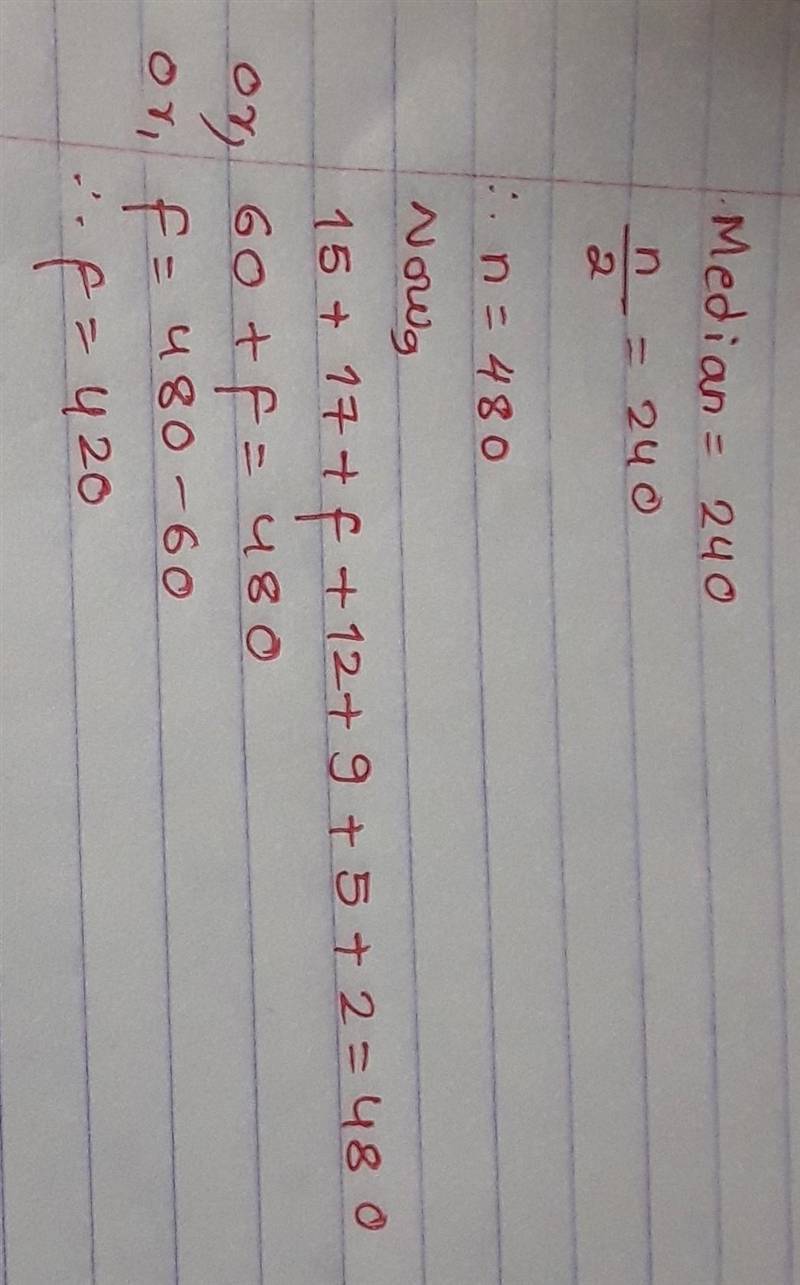 Median = 240
n/2 = 240
∴ n = 480
Now,
15 + 17 + f + 12 + 9 + 5 + 2 = 480
or, 60 + f = 480
or, f = 480 - 60
∴ f = 420